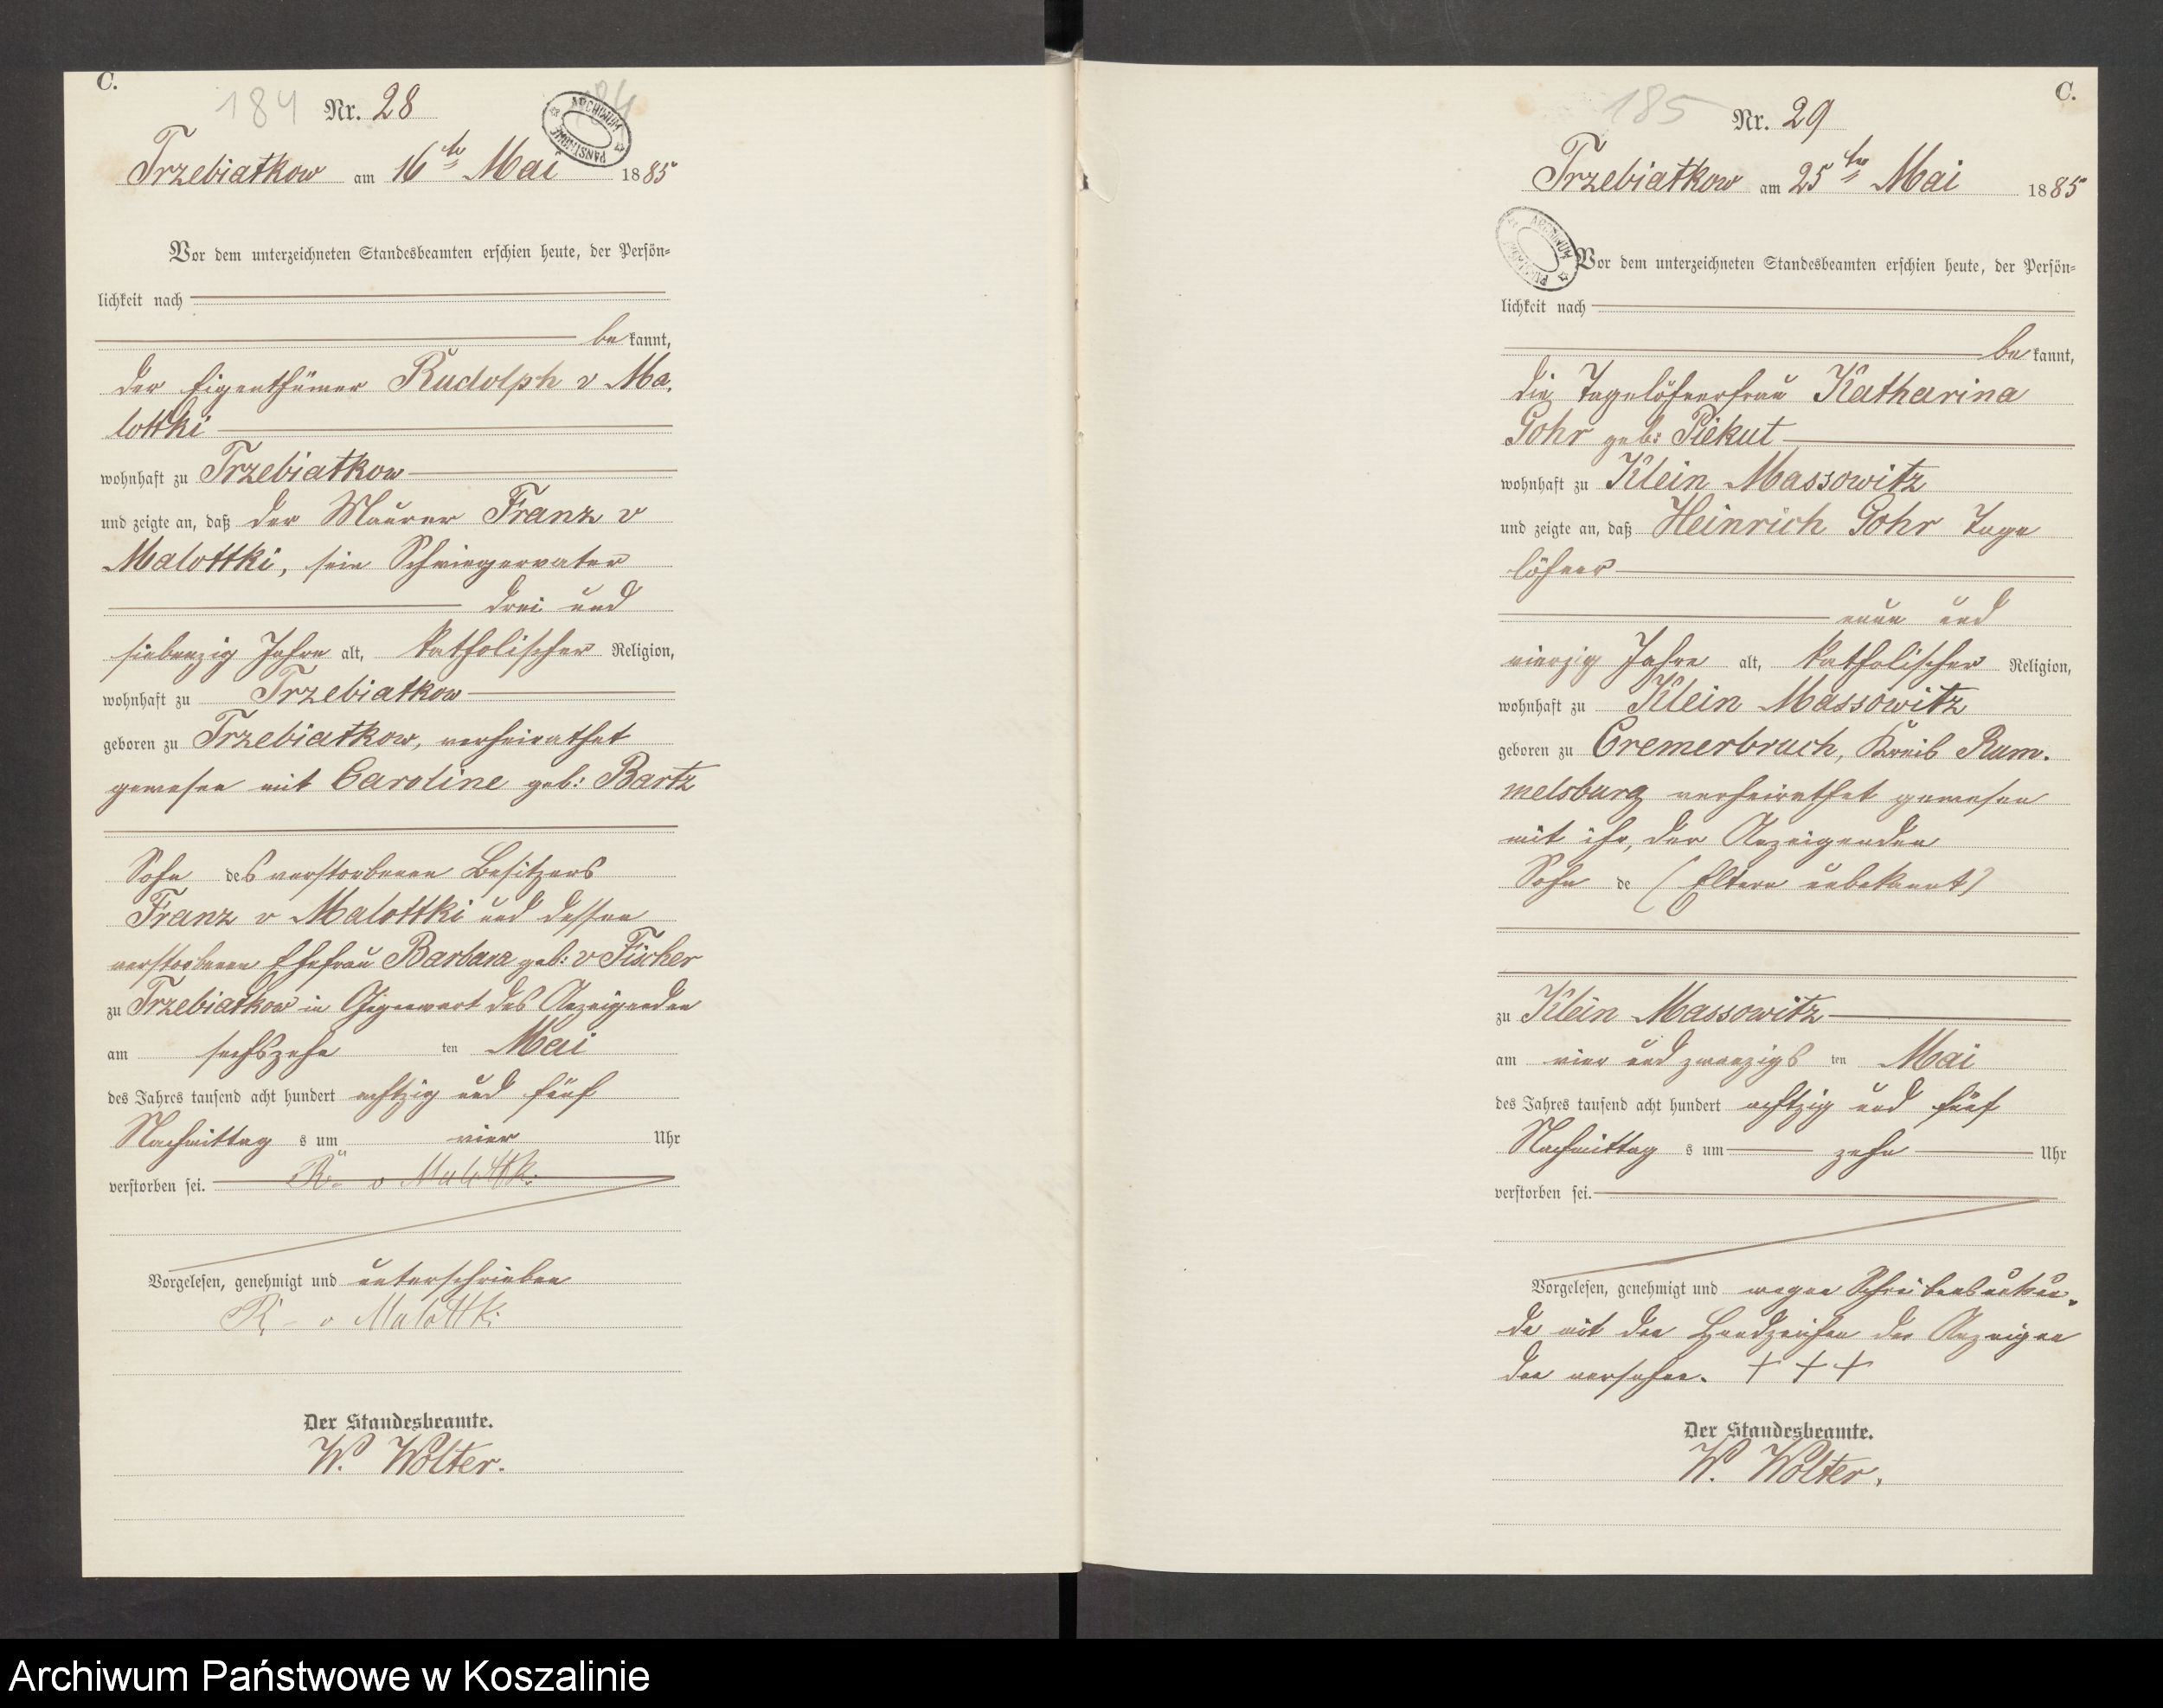 C.
184
Nr. 28
184
ARCHIWUM PAŃSTWOWE
Trzebiatkow am 16ten Mai 1885
Vor dem unterzeichneten Standesbeamten erschien heute, der Persön-
lichkeit nach
be kannt,
der Eigenthümer Rudolph v Ma-
lottki
wohnhaft zu Trzebiatkow
und zeigte an, daß der Maurer Franz v
Malottki, sein Schwiegervater
drei und
siebenzig Jahre alt, katholischer Religion,
wohnhaft zu Trzebiatkow
geboren zu Trzebiatkow, verheirathet
gewesen mit Caroline geb: Bartz
Sohn des verstorbenen Besitzers
Franz v Malottki und dessen
verstorbenen Ehefrau Barbara geb: v Fischer
zu Trzebiatkow in Gegenwart des Anzeigenden
am sechszehn ten Mai
des Jahres tausend acht hundert achtzig und fünf
Nachmittag s um vier Uhr
verstorben sei. R. v Malottki
Vorgelesen, genehmigt und unterschrieben
R. v Malottki
Der Standesbeamte.
W. Wolter.
C.
185
Nr. 29
Trzebiatkow am 25ten Mai 1885
ARCHIWUM PAŃSTWOWE
Vor dem unterzeichneten Standesbeamten erschien heute, der Persön-
lichkeit nach
be kannt,
die Tagelöhnerfrau Katharina
Gohr geb: Piekut
wohnhaft zu Klein Massowitz
und zeigte an, daß Heinrich Gohr Tage
löhner
neun und
vierzig Jahre alt, katholischer Religion,
wohnhaft zu Klein Massowitz
geboren zu Cremerbruch, Kreis Rum-
melsburg verheirathet gewesen
mit ihr, der Anzeigenden
Sohn de (Eltern unbekannt)
zu Klein Massowitz
am vier und zwanzigs ten Mai
des Jahres tausend acht hundert achtzig und fünf
Nachmittag s um zehn Uhr
verstorben sei.
Vorgelesen, genehmigt und wegen Schreibensunkun-
de mit den Handzeichen der Anzeigen
den versehen. + + +
Der Standesbeamte.
W. Wolter.
Archiwum Państwowe w Koszalinie